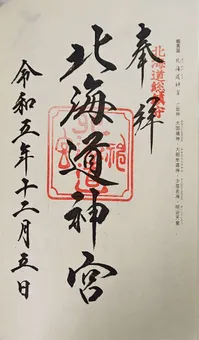 奉拝
北海道総鎮守
北海道神宮
令和五年十二月五日